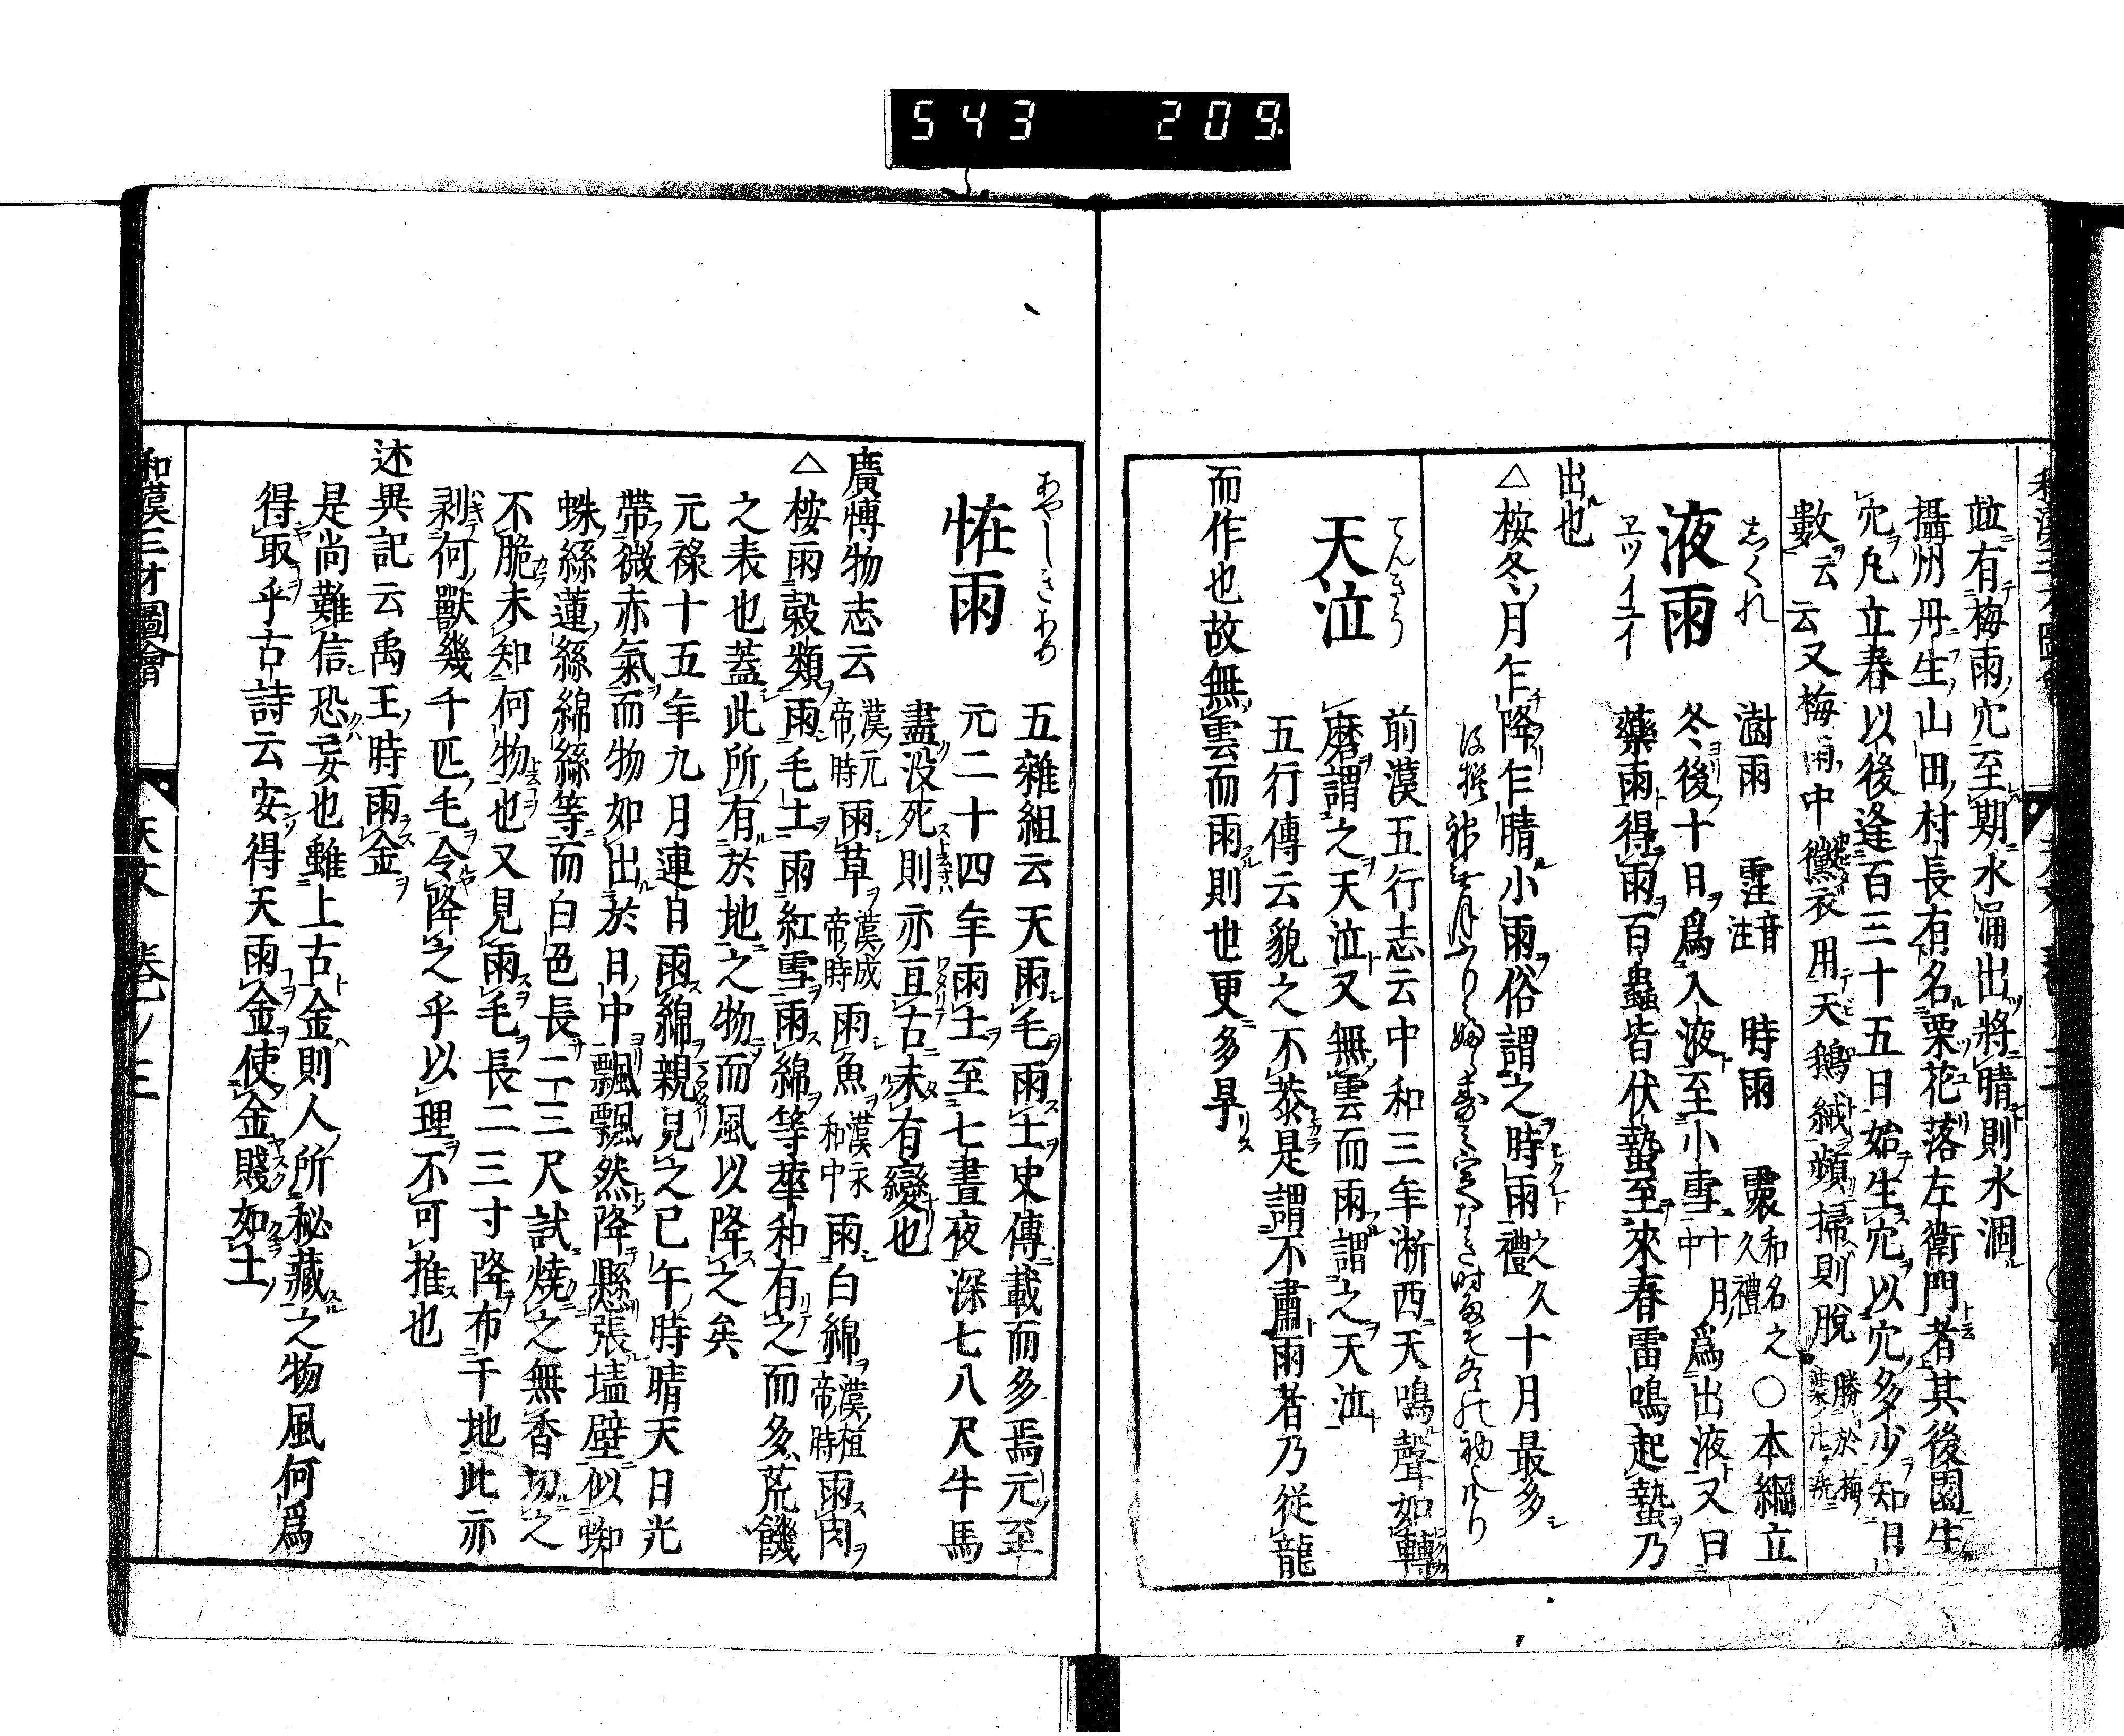 543 209
竝有梅雨穴至期水涌出將晴則水涸
攝州丹生山田村長有名栗花落左衛門者其後園生
穴凡立春以後逢百三十五日始生穴以穴多少知日
數云云又梅雨中黴衣用天鵝絨頻掃則脫 勝於梅葉汁洗
しくれ
液雨
ヱツイユイ
澍雨 霔音注 時雨 霥和名之久禮 〇本綱立
冬後十日爲入液至小雪十月中爲出液又曰
藥雨得雨百蟲皆伏蟄至來春雷鳴起蟄乃
出也
△桉冬月乍降乍晴小雨俗謂之時雨之久禮十月最多
後撰 神無月ふりみふらすみ定なき時雨そ冬の初なりけり
てんきう
天泣
前漢五行志云中和三年浙西天鳴聲如轉
磨謂之天泣又無雲而雨謂之天泣
五行傳云貌之不恭是謂不肅雨者乃從龍
而作也故無雲而雨則世更多旱
あやしきあめ
恠雨
五雜組云天雨毛雨土史傳載而多焉元至
元二十四年雨土至七晝夜深七八尺牛馬
盡没死則亦亘古未有變也
廣博物志云漢元帝時雨草漢成帝時雨魚漢永和中雨白綿漢桓帝時雨肉
△桉雨穀類雨毛土雨紅雪雨綿等華和有之而多荒饑
之表也蓋此所有於地之物而風以降之矣
元祿十五年九月連日雨綿親見之巳午時晴天日光
帶微赤氣而物如出於日中飄飄然降懸張墻壁似蜘
蛛絲蓮絲綿絲等而白色長二三尺試燒之無香切之
不脆未知何物也又見雨毛長二三寸降布于地此亦
剥何獸幾千匹毛令降之乎以理不可推也
述異記云禹王時雨金
是尚難信恐妄也雖上古金則人所秘藏之物風何爲
得取乎古詩云安得天雨金使金賤如土
和漢三才圖會 天文 卷ノ三